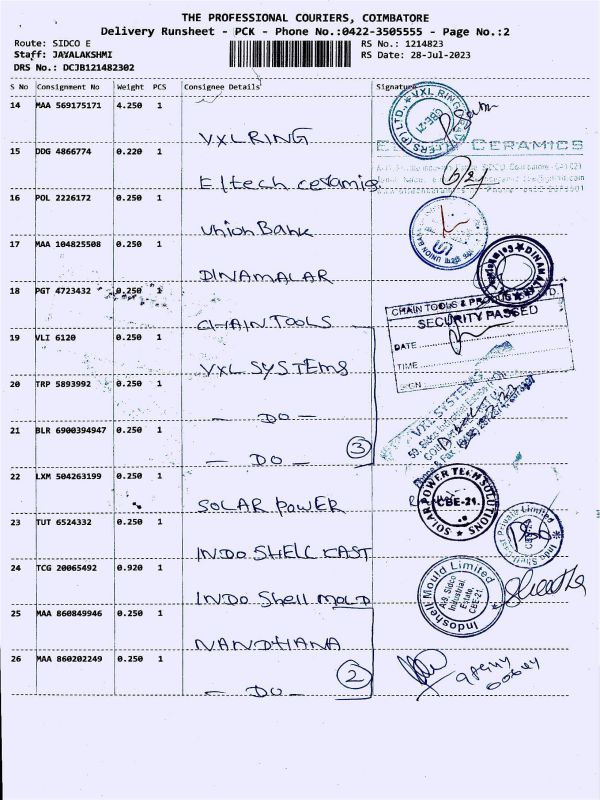 THE PROFESSIONAL COURIERS, COIMBATORE
Delivery Runsheet - PCK - Phone No.:0422-3505555 - Page No.:2
Route: SIDCO E RS No.: 1214823
Staff: JAYALAKSHMI RS Date: 28-Jul-2023
DRS No.: DCJB121482302
S No Consignment No Weight PCS Consignee Details Signature
14 MAA 569175171 4.250 1
VXL RING
15 DDG 4866774 0.220 1
Eltech ceramics
CERAMICS
16 POL 2226172 0.250 1
Union Bank
17 MAA 104825508 0.250 1
DINAMALAR
18 PGT 4723432 0.250 1
CHAIN TOOLS
CHAIN TOOLS &
SECURITY PASSED
DATE
TIME
SIGN
19 VLI 6120 0.250 1
VXL SYSTEMS
20 TRP 5893992 0.250 1
- DO -
VXL SYSTEMS
21 BLR 6900394947 0.250 1
- DO -
3
22 LXM 504263199 0.250 1
SOLAR POWER
SOLAR POWER TECH SOLUTIONS
CBE-21.
23 TUT 6524332 0.250 1
INDO SHELL CAST
24 TCG 20065492 0.920 1
INDO Shell MOLD
Indoshell Mould Limited
A-9, Sidco
Industrial
Estate,
CBE-21.
25 MAA 860849946 0.250 1
NANDHANA
26 MAA 860202249 0.250 1
- DO -
2